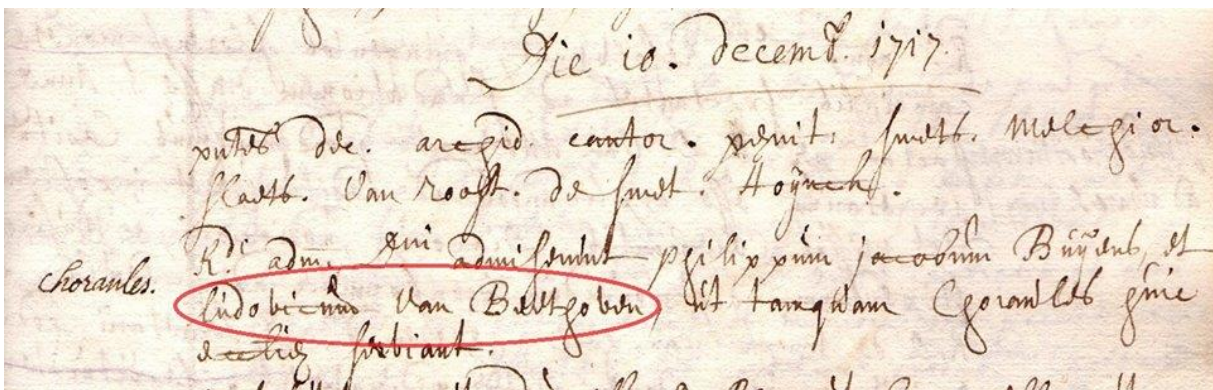 Die 10. decemb. 1717.
pntes dec. archid. cantor. penit. smets. Melchior.
slaets. Van Roost. de smet. Hoÿnck.
Rdi adm. Dni admiserunt philippum jacobum Buÿens, et
Choraules. ludovicum Van Beethoven, ut tamquam Choraules huic
eccliæ serviant.